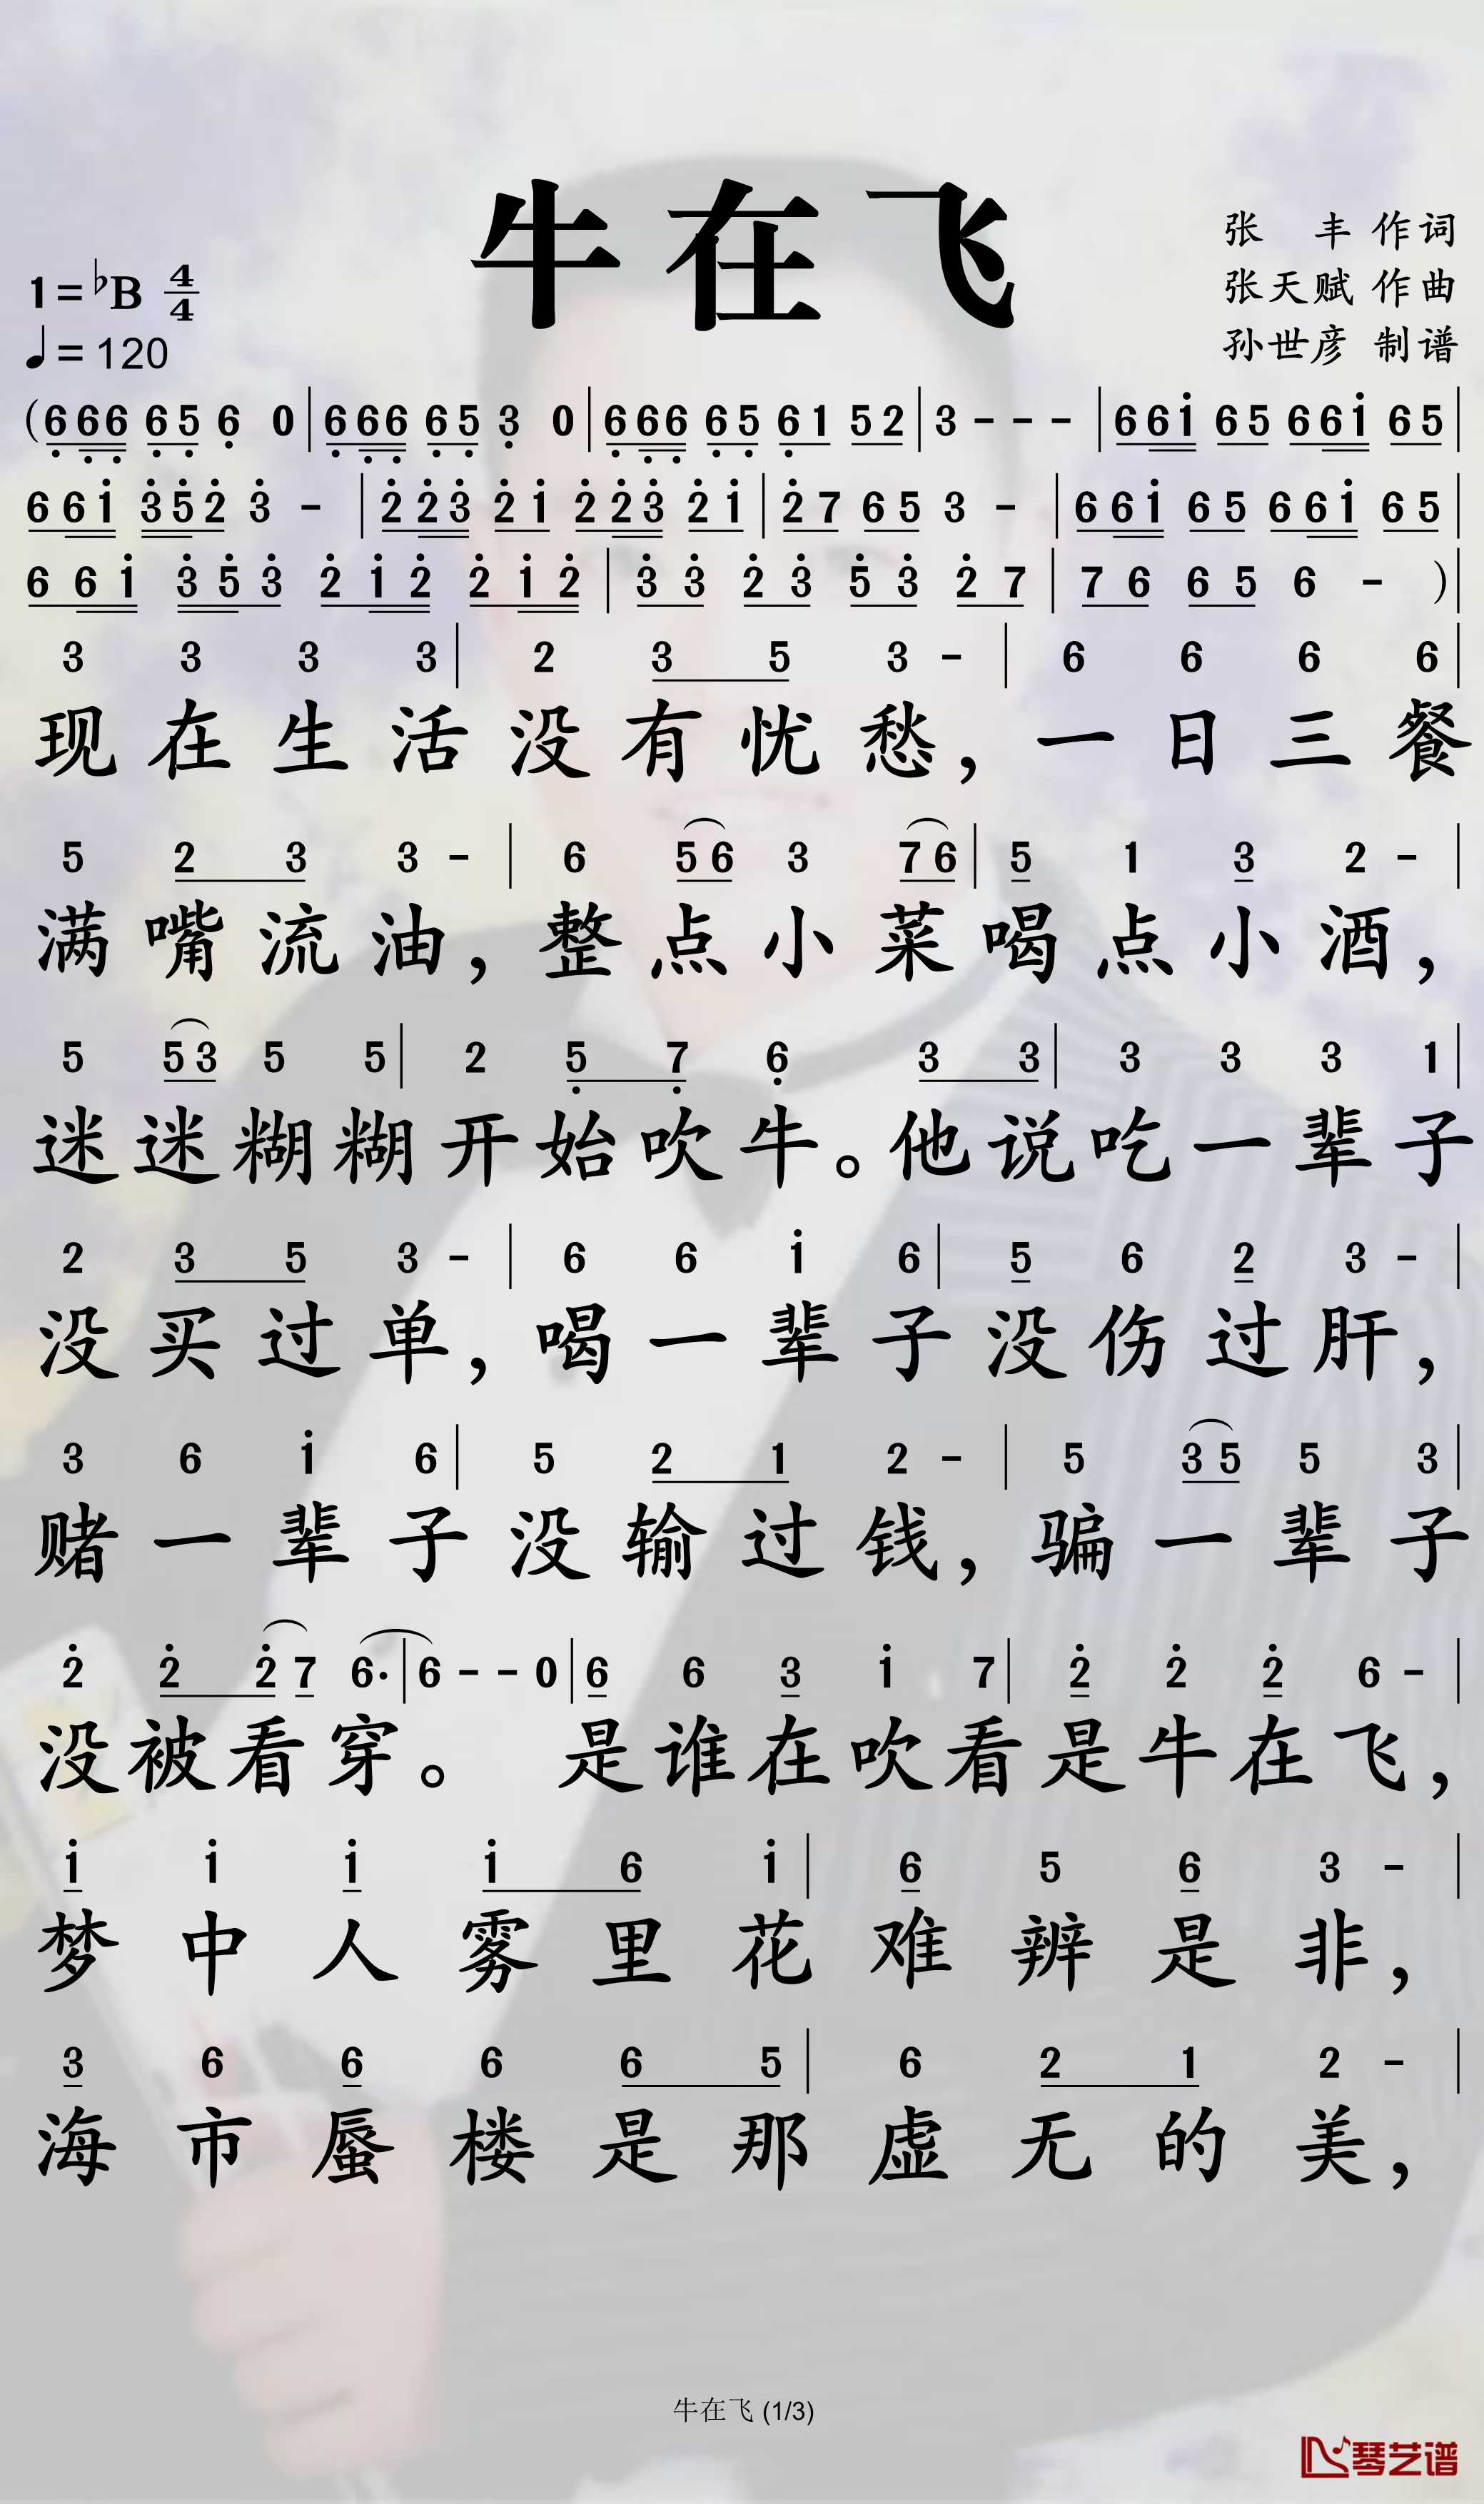 牛在飞
张 丰 作词
1=♭B 4/4
张天赋 作曲
♩=120
孙世彦 制谱
(6̣ 6̣6̣ 6̣5̣ 6̣ 0 | 6̣ 6̣6̣ 6̣5̣ 3̣ 0 | 6̣ 6̣6̣ 6̣5̣ 6̣1 52 | 3 - - - | 66i̇ 65 66i̇ 65 |
66i̇ 3̇5̇2̇ 3̇ - | 2̇2̇3̇ 2̇i̇ 2̇2̇3̇ 2̇i̇ | 2̇7 65 3 - | 66i̇ 65 66i̇ 65 |
6 6 i̇ 3̇ 5̇ 3̇ 2̇ i̇ 2̇ 2̇ i̇ 2̇ | 3̇ 3̇ 2̇ 3̇ 5̇ 3̇ 2̇ 7 | 7 6 6 5 6 - )|
3 3 3 3 | 2 3 5 3 - | 6 6 6 6 |
现在生活没有忧愁，一日三餐
5 2 3 3 - | 6 56 3 76 | 5 1 3 2 - |
满嘴流油，整点小菜喝点小酒，
5 53 5 5 | 2 5̣ 7̣ 6̣ 3 3 | 3 3 3 1 |
迷迷糊糊开始吹牛。他说吃一辈子
2 3 5 3 - | 6 6 i̇ 6 | 5 6 2 3 - |
没买过单，喝一辈子没伤过肝，
3 6 i̇ 6 | 5 2 1 2 - | 5 35 5 3 |
赌一辈子没输过钱，骗一辈子
2̇ 2̇ 2̇ 7 6· | 6 - - 0 | 6 6 3 i̇ 7 | 2̇ 2̇ 2̇ 6 - |
没被看穿。 是谁在吹看是牛在飞，
i̇ i̇ i̇ i̇ 6 i̇ | 6 5 6 3 - |
梦中人雾里花难辨是非，
3 6 6 6 6 5 | 6 2 1 2 - |
海市蜃楼是那虚无的美，
牛在飞 (1/3)
琴艺谱